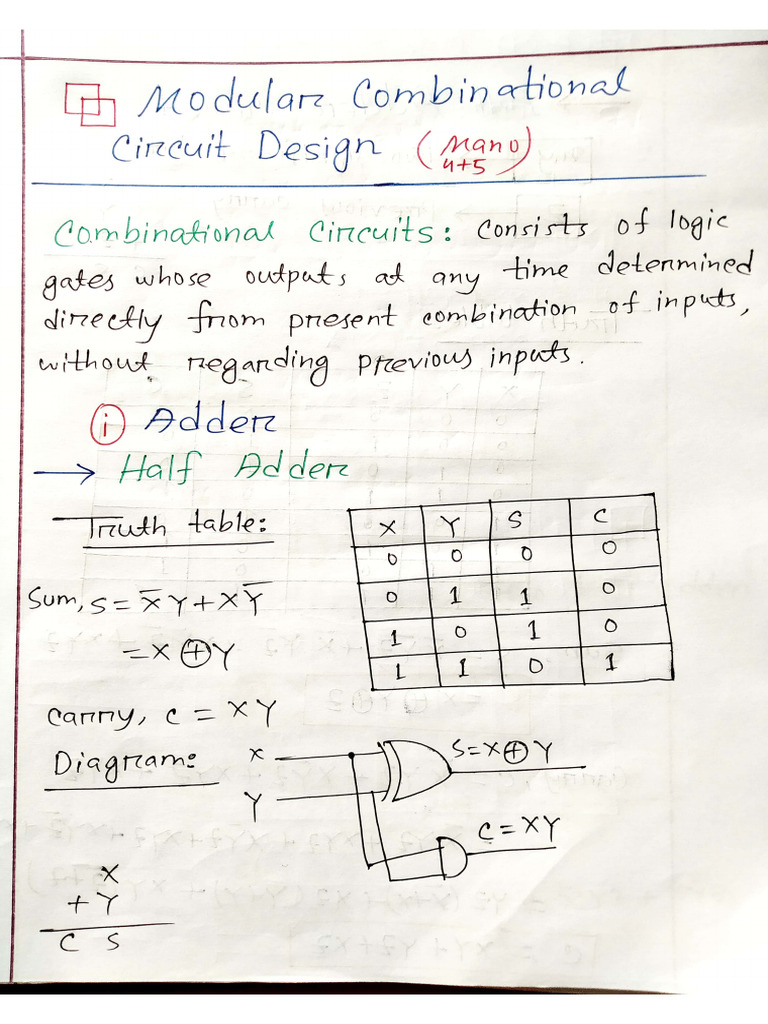 Modular Combinational
Circuit Design (Mano
4+5)
Combinational Circuits: Consists of logic
gates whose outputs at any time determined
directly from present combination of inputs,
without regarding previous inputs.
i Adder
→ Half Adder
Truth table:
X Y S C
0 0 0 0
0 1 1 0
1 0 1 0
1 1 0 1
Sum, S = X̅Y + XY̅
= X ⊕ Y
Carry, C = XY
Diagram:
X
Y
S = X ⊕ Y
C = XY
X
+ Y
C S